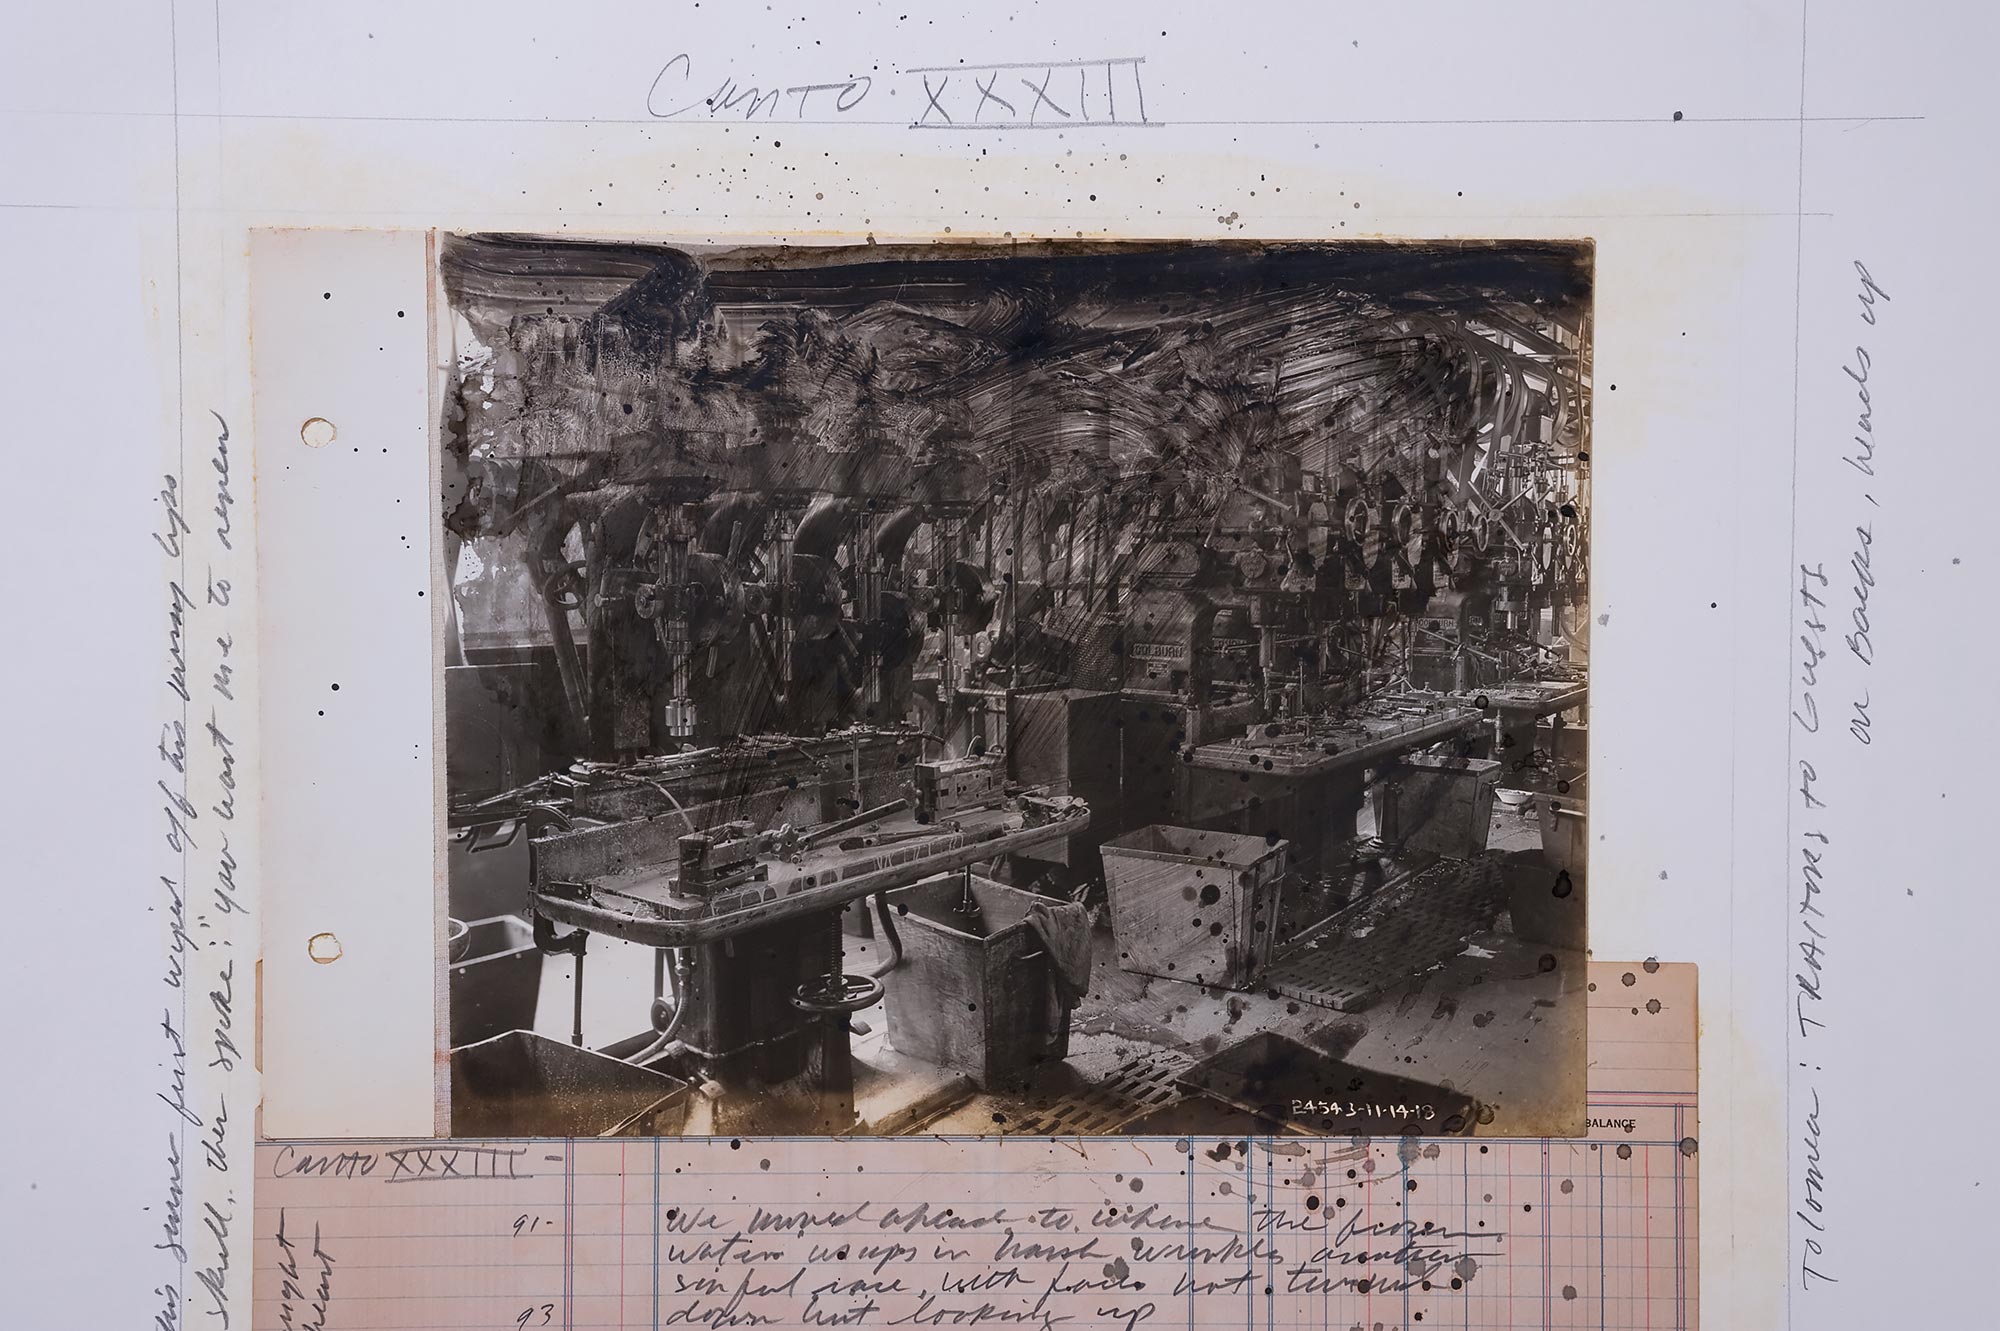 Canto XXXIII
this sinner first wiped off his lips
skull, then spoke: "you want me to renew
COLBURN
COLBURN
24543-11-14-18
BALANCE
Canto XXXIII -
91- We moved ahead to where the frozen
water wraps in harsh wrinkles another
sinful race, with faces not turned
93 down but looking up
heart
Tolomea: TRAITORS to Guests
on Backs, heads up